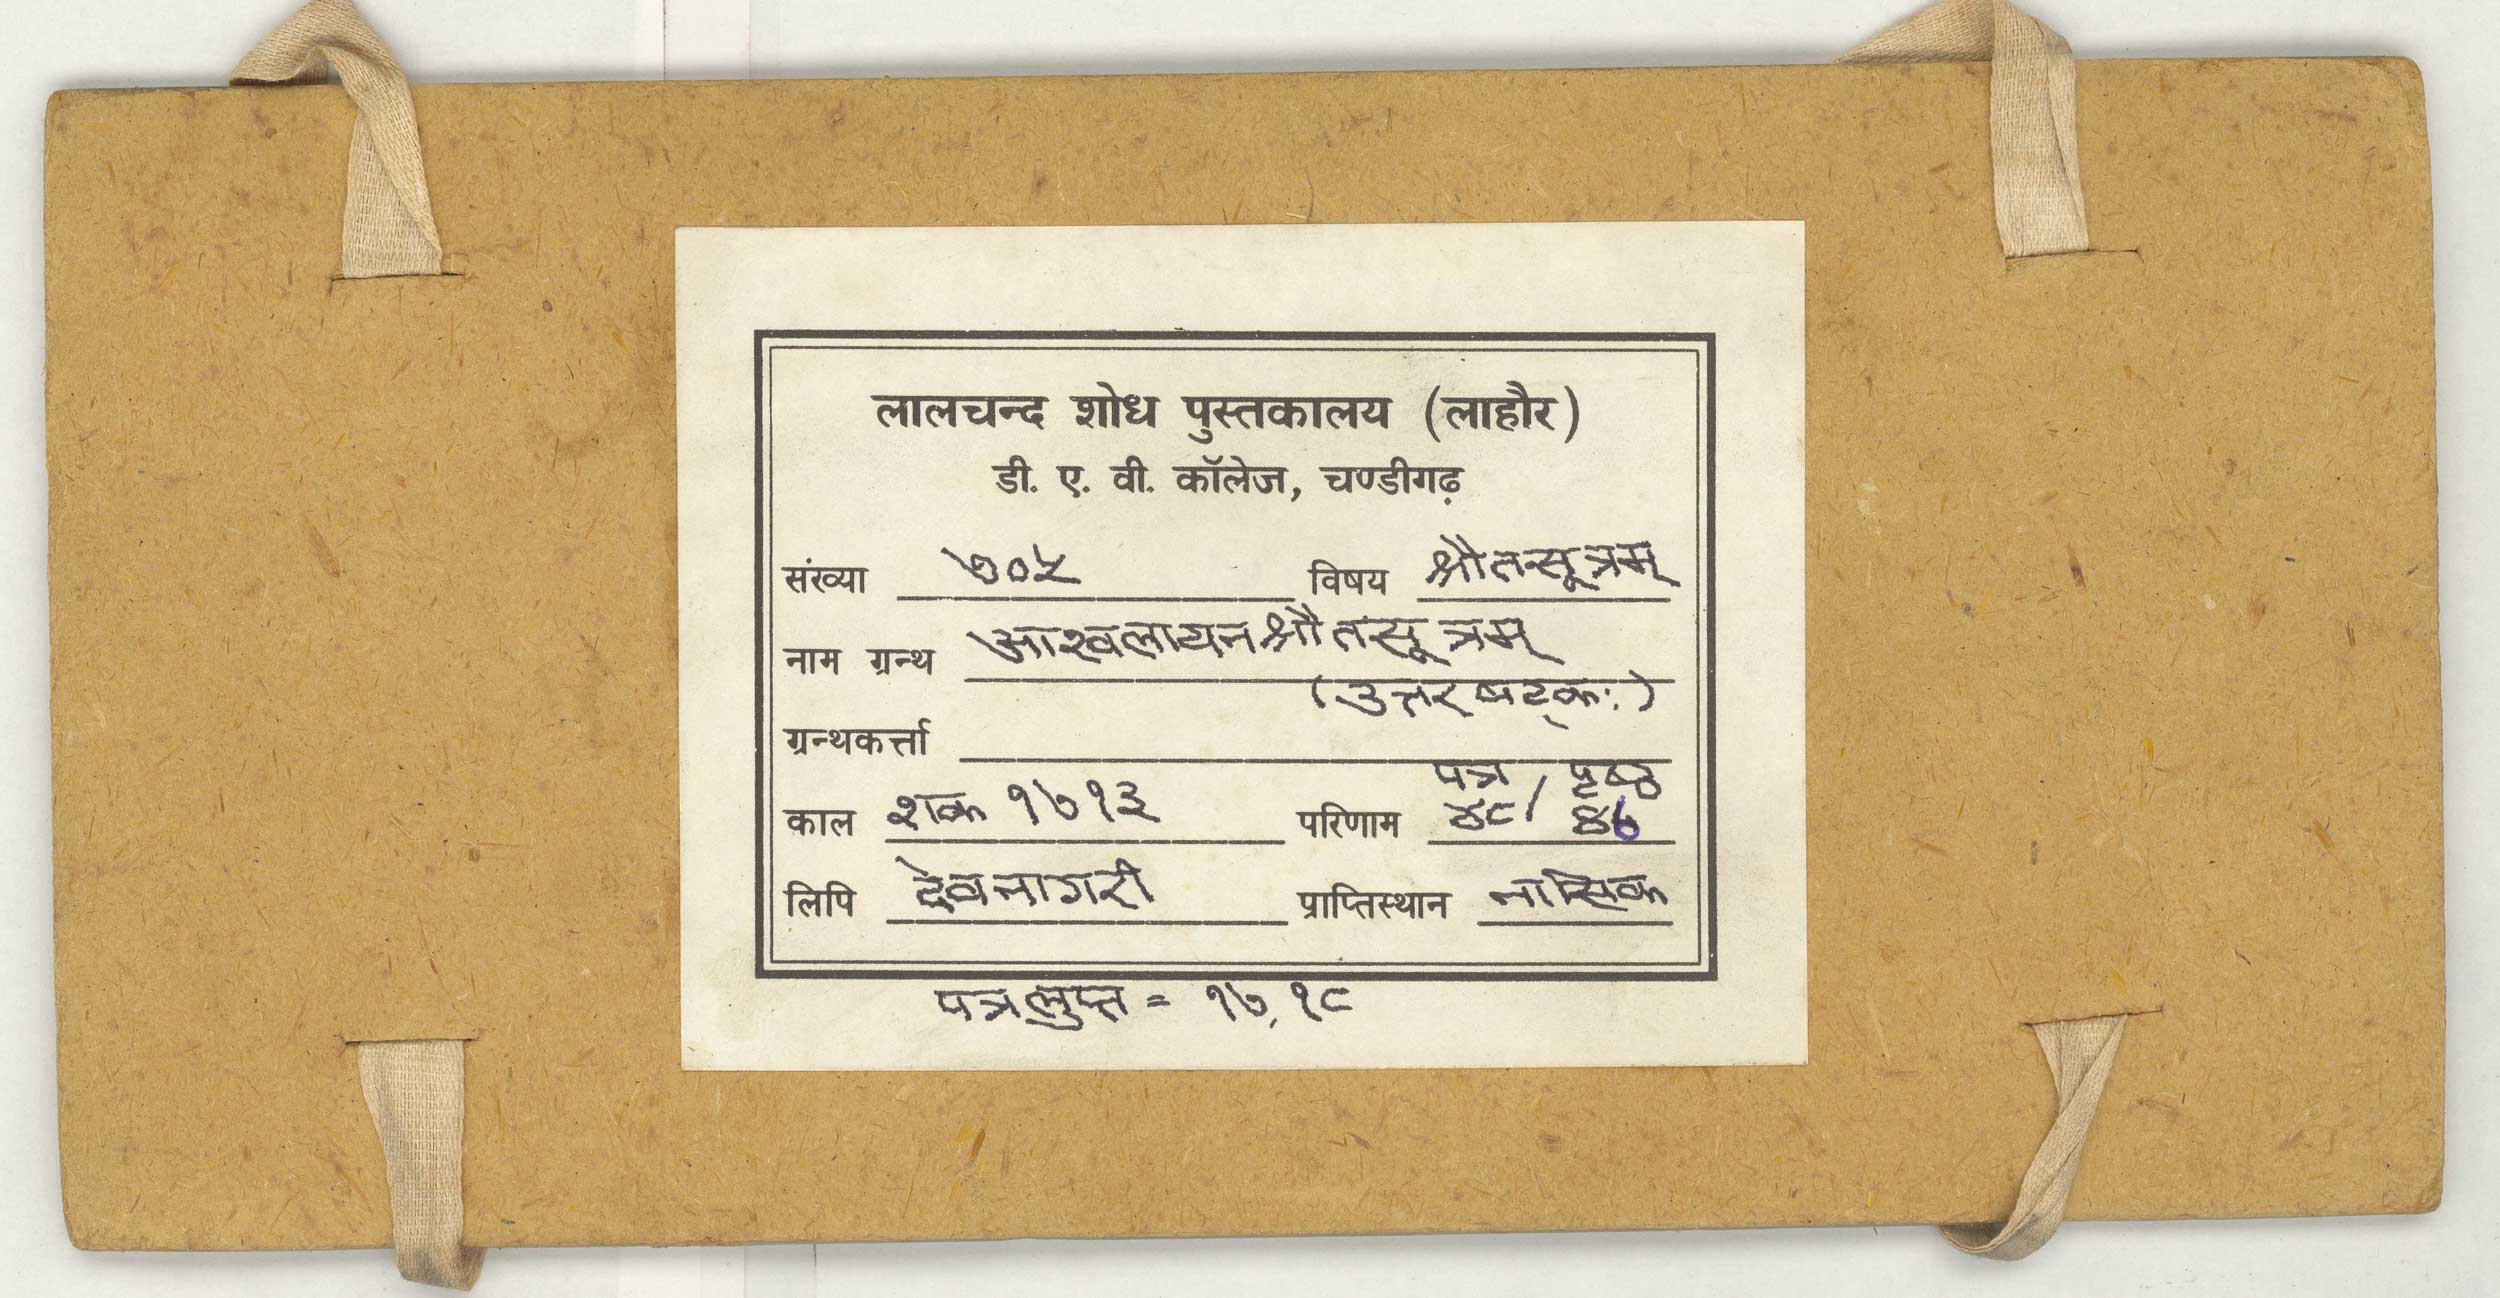 लालचन्द शोध पुस्तकालय (लाहौर)
डी. ए. वी. कॉलेज, चण्डीगढ़
संख्या ७०५ विषय श्रौतसूत्रम्
नाम ग्रन्थ आश्वलायनश्रौतसूत्रम्
(उत्तरषट्कः)
ग्रन्थकर्त्ता
पत्र / पृष्ठ
काल शक १७१३ परिणाम ४८/
लिपि देवनागरी प्राप्तिस्थान नासिक
पत्रलुप्त = १७, १८